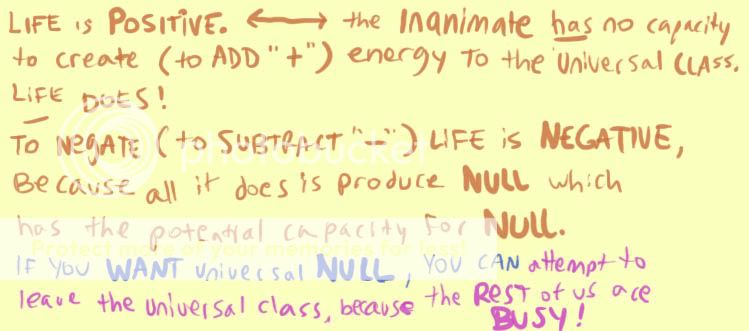 LIFE is POSITIVE. ⟷ the Inanimate has no capacity
to create (to ADD "+") energy To the Universal CLASS.
LIFE DOES!
To NEGATE (to SUBTRACT "-") LIFE is NEGATIVE,
Because all it does is produce NULL which
has the potential capacity For NULL.
IF YOU WANT Universal NULL, YOU CAN attempt to
leave the universal class, because the REST of us are
BUSY!
photobucket
Protect more of your memories for less!